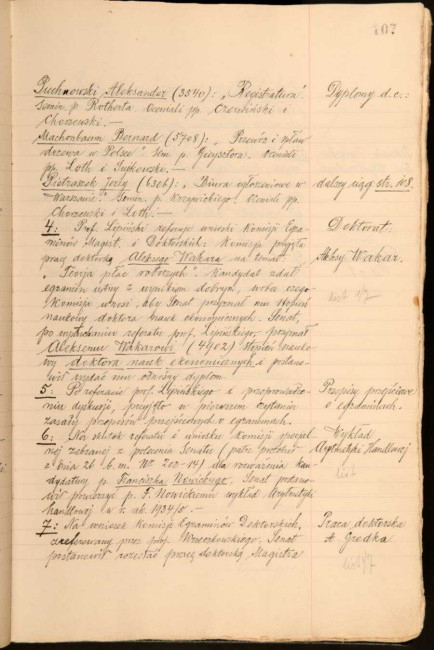 107
Puchnowski Aleksander (3540): „Registratura".
Semin. p. Rotherta. Oceniali pp. Czerwiński i
Chorzewski. —
Machonbaum Bernard (5708): „Przewóz i spław
drzewa w Polsce" Sem. p. Grysztora. Oceniali
pp. Loth i Sujkowski. —
Pietraszek Józef (6306): „Biura ogłoszeniowe w
Warszawie". Semin. p. Krzywickiego. Oceniali pp.
Chorzewski i Loth. —
Dyplomy d.c.:
dalszy ciąg str. 108.
4: Prof. Lipiński referuje wnioski Komisji Egza-
minów Magist. i Doktorskich: Komisja przyjęła
pracę doktorską Aleksego Wakara na temat:
„Teorja płac roboczych". Kandydat zdał
egzamin ustny z wynikiem dobrym, wobec czego
Komisja wnosi, aby Senat przyznał mu stopień
naukowy doktora nauk ekonomicznych. Senat,
po wysłuchaniu referatu prof. Lipińskiego, przyznał
Aleksemu Wakarowi (4902) stopień nauko-
wy doktora nauk ekonomicznych i postano-
wił wydać mu odnośny dyplom.
Doktorat:
Aleksy Wakar.
5: Po referacie prof. Lipińskiego i przeprowadze-
niu dyskusji, przyjęto w pierwszem czytaniu
zasady przepisów przejściowych o egzaminach.
Przepisy przejściowe
o egzaminach.
6: Na skutek referatu i wniosku Komisji specjal-
nej zebranej z polecenia Senatu (patrz protokół
z dnia 26 b. m. Nr. 200-14) dla rozważenia kan-
dydatury p. Franciszka Nowickiego, Senat postano-
wił powierzyć p. F. Nowickiemu wykład Arytmetyki
handlowej w r. ak. 1934/5. —
Wykład
Arytmetyki Handlowej
7: Na wniosek Komisji Egzaminów Doktorskich,
zreferowany przez prof. Wrzeszkowskiego, Senat
postanowił rozesłać pracę doktorską Magistra
Praca doktorska
A. Grodka